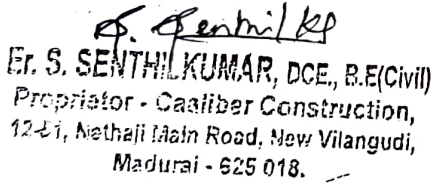 S. Senthil K
Er. S. SENTHILKUMAR, DCE., B.E(Civil)
Propriator - Caaliber Construction,
Nethaji Main Road, New Vilangudi,
Madurai - 625 018.